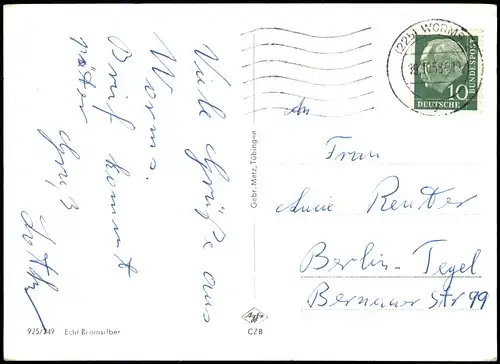 Viele Grüße aus
Worms.
Brief kommt
später
Gruß
An
Frau
Reuter
Berlin-Tegel
Bernauer Str 99
(22b) WORMS
DEUTSCHE
BUNDESPOST
10
Gebr. Metz, Tübingen
925/349 Echt Bromsilber
Agfa
CZB